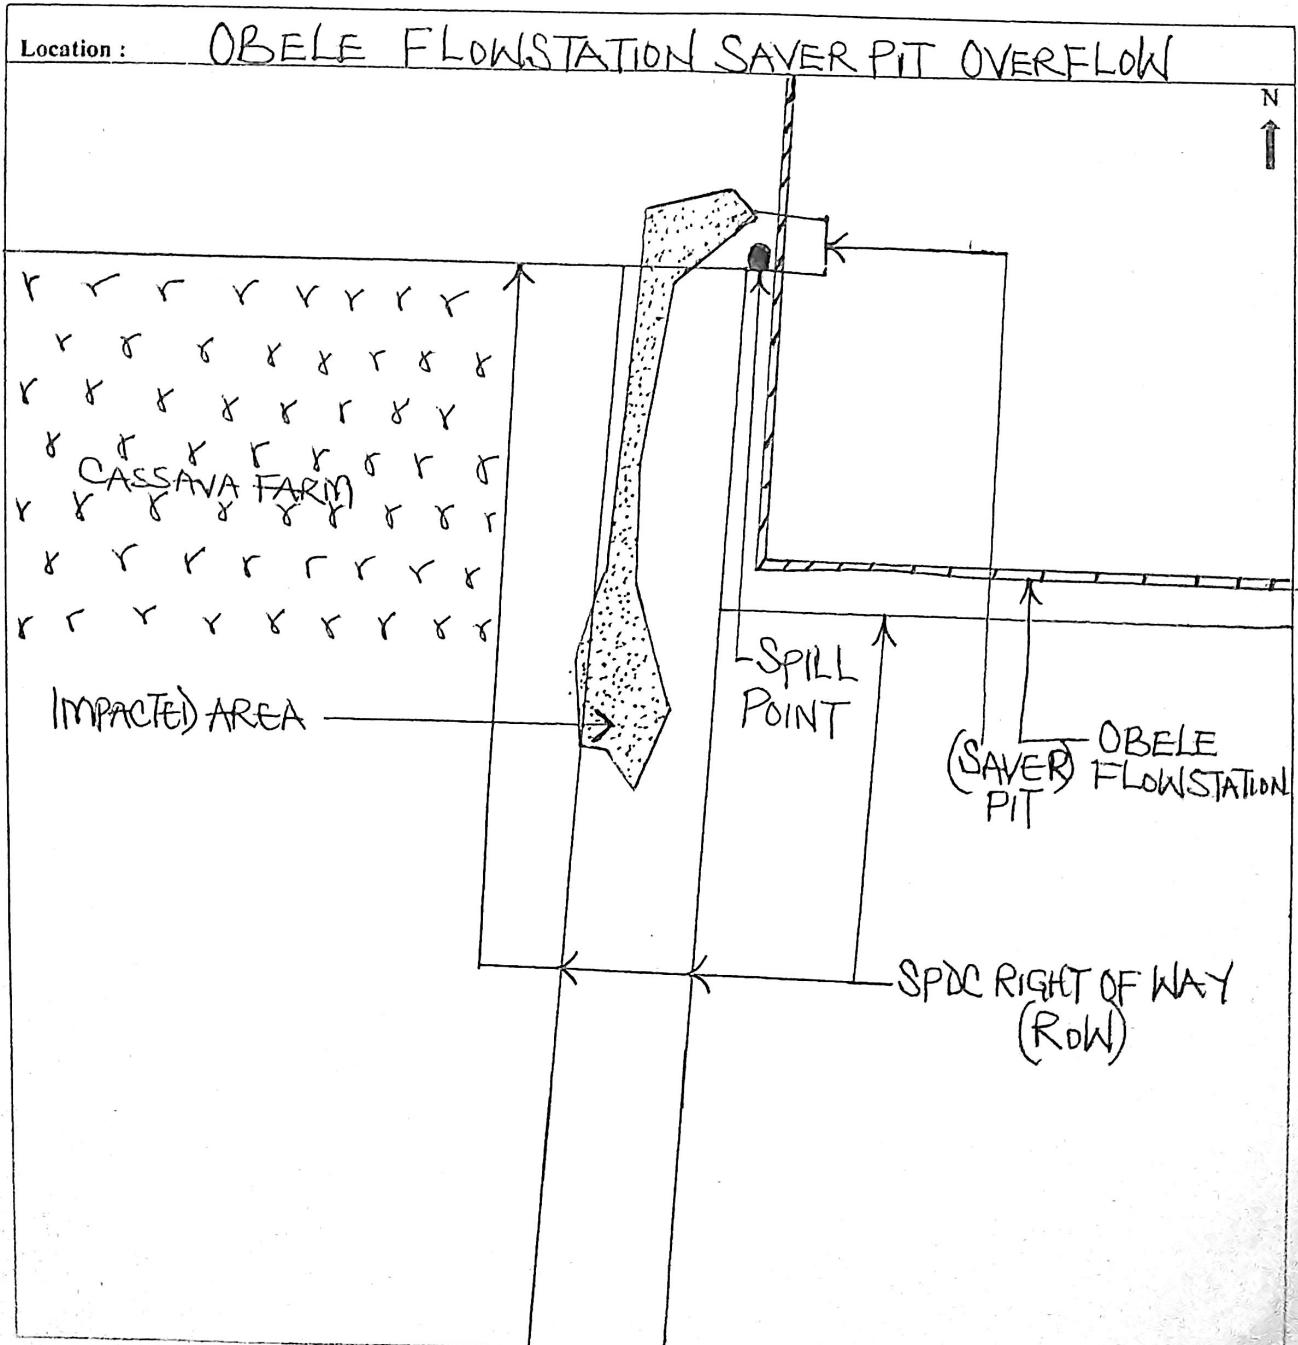 Location : OBELE FLOWSTATION SAVER PIT OVERFLOW
N
CASSAVA FARM
IMPACTED AREA
SPILL
POINT
(SAVER)
PIT
OBELE
FLOWSTATION
SPDC RIGHT OF WAY
(ROW)